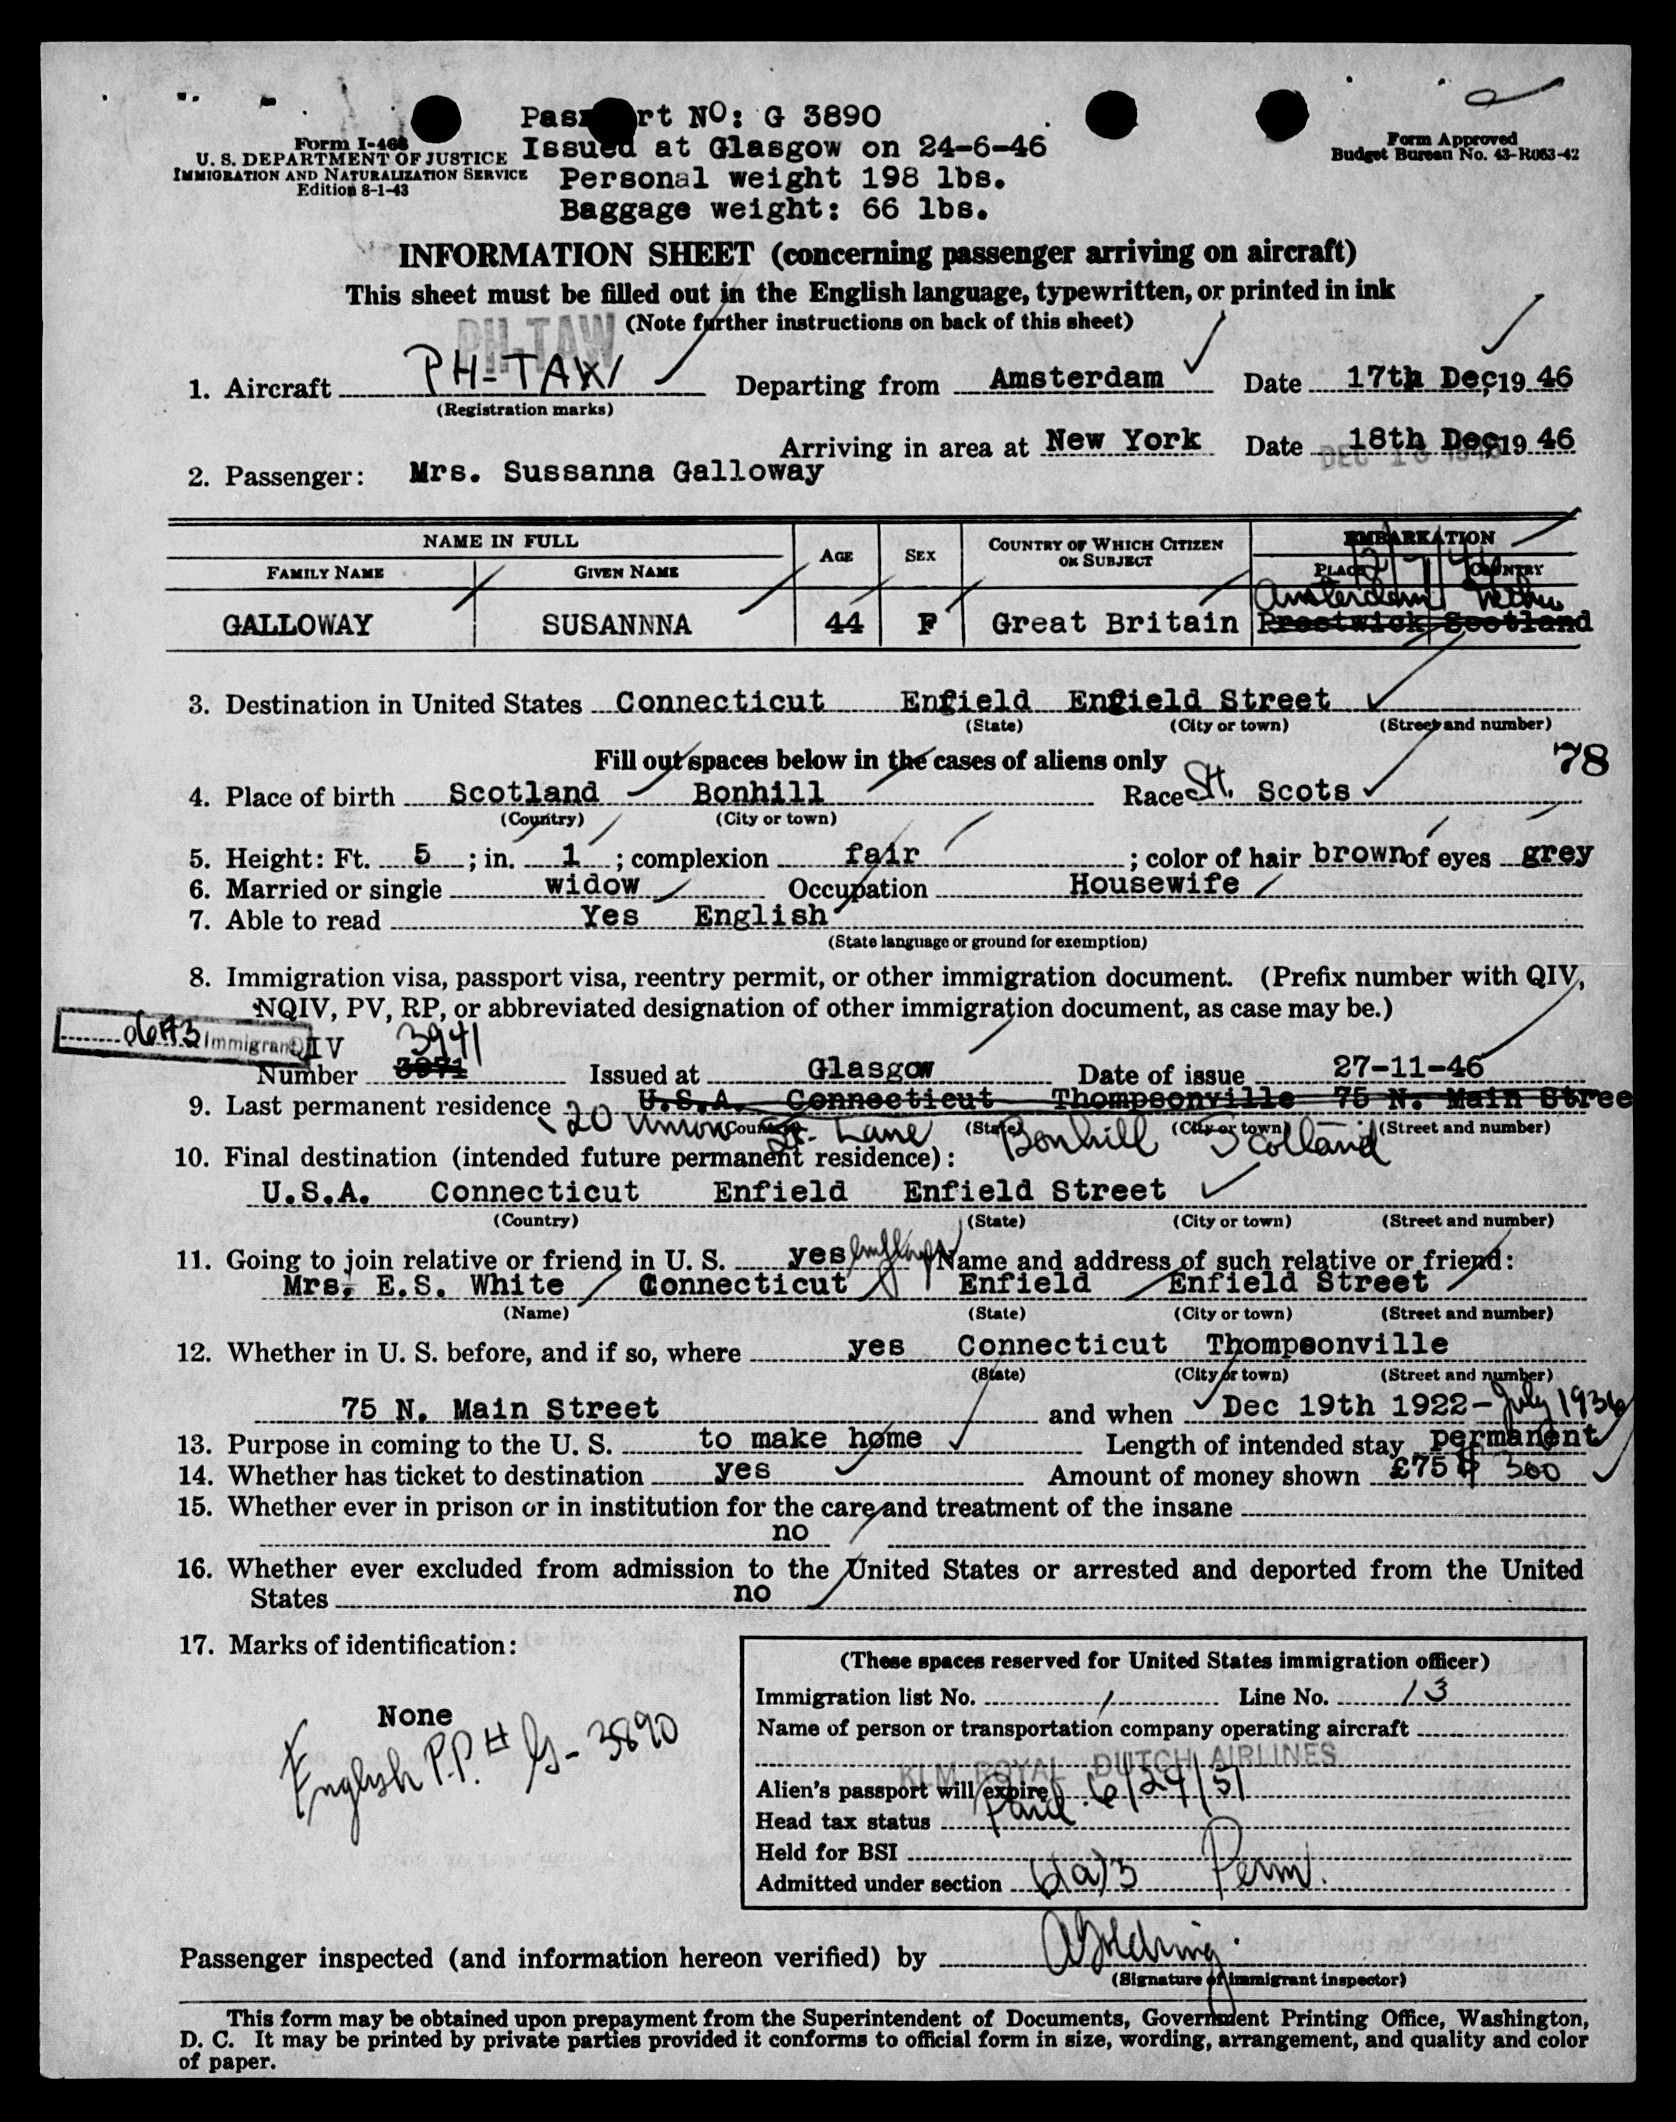 Passport NO: G 3890
Form I-466
U. S. DEPARTMENT OF JUSTICE
IMMIGRATION AND NATURALIZATION SERVICE
Edition 8-1-43
Issued at Glasgow on 24-6-46
Personal weight 198 lbs.
Baggage weight: 66 lbs.
Form Approved
Budget Bureau No. 43-R063-42
INFORMATION SHEET (concerning passenger arriving on aircraft)
This sheet must be filled out in the English language, typewritten, or printed in ink
(Note further instructions on back of this sheet)
PH-TAW
1. Aircraft PH-TAW Departing from Amsterdam Date 17th Dec, 19 46
(Registration marks)
Arriving in area at New York Date 18th Dec, 19 46
2. Passenger: Mrs. Sussanna Galloway
NAME IN FULL AGE SEX COUNTRY OF WHICH CITIZEN OR SUBJECT EMBARKATION
FAMILY NAME GIVEN NAME PLACE COUNTRY
Amsterdam Neth
GALLOWAY SUSANNNA 44 F Great Britain Prestwick Scotland
3. Destination in United States Connecticut Enfield Enfield Street
(State) (City or town) (Street and number)
Fill out spaces below in the cases of aliens only
78
4. Place of birth Scotland Bonhill Race Scots
(Country) (City or town)
5. Height: Ft. 5 ; in. 1 ; complexion fair ; color of hair brown of eyes grey
6. Married or single widow Occupation Housewife
7. Able to read Yes English
(State language or ground for exemption)
8. Immigration visa, passport visa, reentry permit, or other immigration document. (Prefix number with QIV,
NQIV, PV, RP, or abbreviated designation of other immigration document, as case may be.)
Immigrant QIV 3941
Number 3971 Issued at Glasgow Date of issue 27-11-46
9. Last permanent residence U.S.A. Connecticut Thompsonville 75 N. Main Stree
20 Union St. Lane Bonhill Scotland
(Country) (State) (City or town) (Street and number)
10. Final destination (intended future permanent residence):
U.S.A. Connecticut Enfield Enfield Street
(Country) (State) (City or town) (Street and number)
11. Going to join relative or friend in U. S. yes Name and address of such relative or friend:
Mrs. E.S. White Connecticut Enfield Enfield Street
(Name) (State) (City or town) (Street and number)
12. Whether in U. S. before, and if so, where yes Connecticut Thompsonville
(State) (City or town) (Street and number)
75 N. Main Street and when Dec 19th 1922 - July 1936
13. Purpose in coming to the U. S. to make home Length of intended stay permanent
14. Whether has ticket to destination yes Amount of money shown £75 $ 300
15. Whether ever in prison or in institution for the care and treatment of the insane
no
16. Whether ever excluded from admission to the United States or arrested and deported from the United
States no
17. Marks of identification:
None
English P.P. # G-3890
(These spaces reserved for United States immigration officer)
Immigration list No. 1 Line No. 13
Name of person or transportation company operating aircraft
KLM ROYAL DUTCH AIRLINES
Alien's passport will expire 6/24/51
Head tax status Paid
Held for BSI
Admitted under section 6(a)3 Perm.
Passenger inspected (and information hereon verified) by
(Signature of immigrant inspector)
This form may be obtained upon prepayment from the Superintendent of Documents, Government Printing Office, Washington,
D. C. It may be printed by private parties provided it conforms to official form in size, wording, arrangement, and quality and color
of paper.